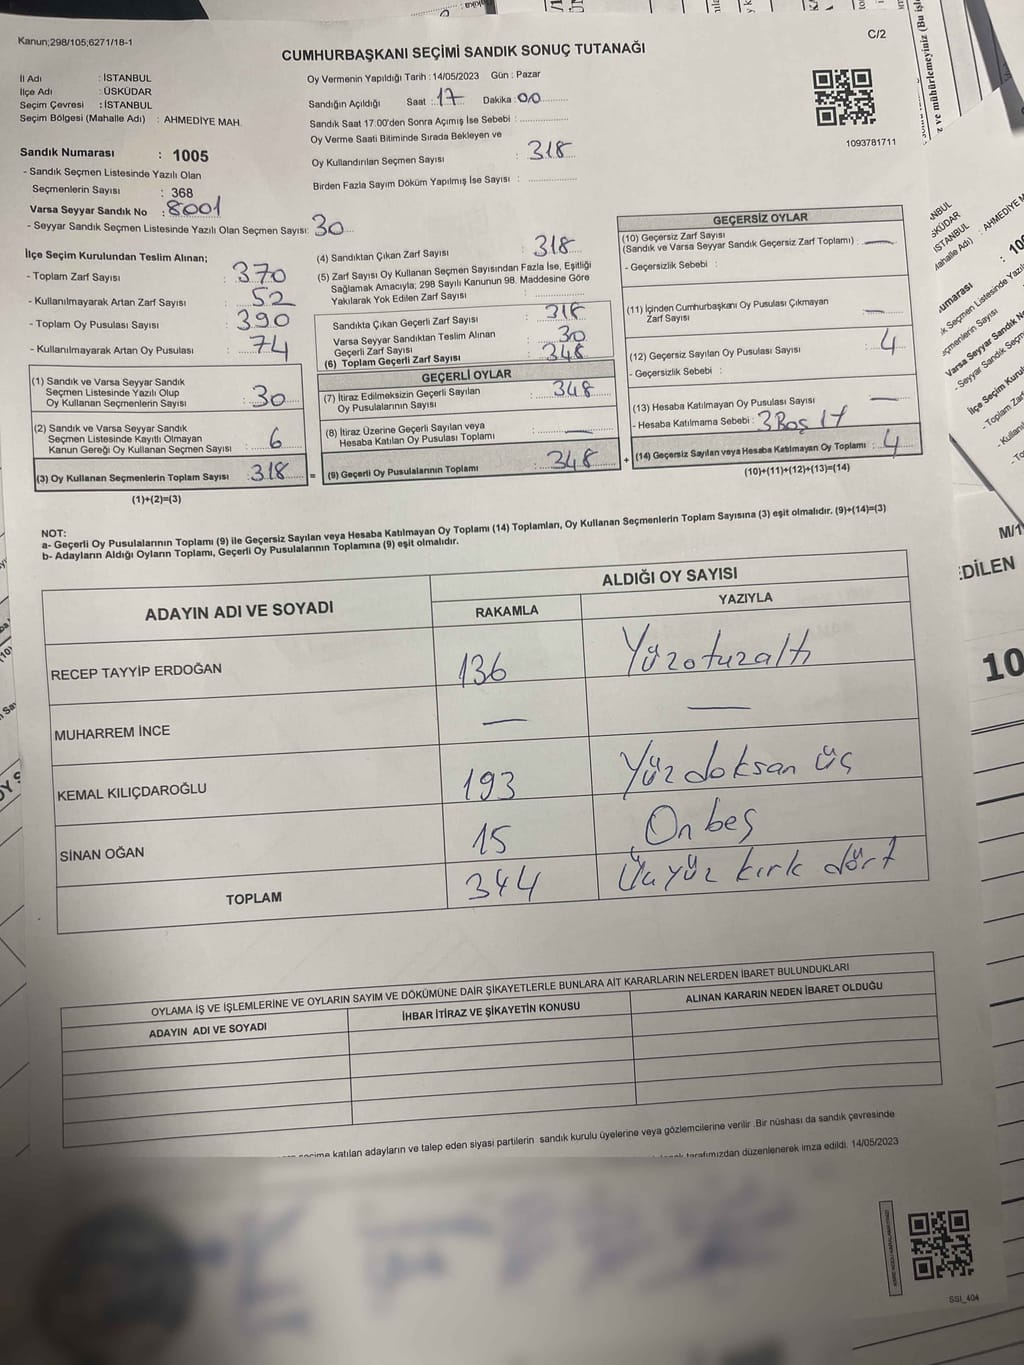 Kanun;298/105;6271/18-1
C/2
CUMHURBAŞKANI SEÇİMİ SANDIK SONUÇ TUTANAĞI
İl Adı : İSTANBUL
İlçe Adı : ÜSKÜDAR
Seçim Çevresi : İSTANBUL
Seçim Bölgesi (Mahalle Adı) : AHMEDİYE MAH.
Oy Vermenin Yapıldığı Tarih : 14/05/2023 Gün : Pazar
Sandığın Açıldığı Saat : 17 Dakika : 00
Sandık Saat 17:00'den Sonra Açımış İse Sebebi :
Oy Verme Saati Bitiminde Sırada Bekleyen ve
Oy Kullandırılan Seçmen Sayısı : 318
Birden Fazla Sayım Döküm Yapılmış İse Sayısı :
1093781711
Sandık Numarası : 1005
- Sandık Seçmen Listesinde Yazılı Olan
Seçmenlerin Sayısı : 368
Varsa Seyyar Sandık No : 8001
- Seyyar Sandık Seçmen Listesinde Yazılı Olan Seçmen Sayısı: 30
İlçe Seçim Kurulundan Teslim Alınan;
- Toplam Zarf Sayısı : 370
- Kullanılmayarak Artan Zarf Sayısı : 52
- Toplam Oy Pusulası Sayısı : 390
- Kullanılmayarak Artan Oy Pusulası : 74
(1) Sandık ve Varsa Seyyar Sandık
Seçmen Listesinde Yazılı Olup
Oy Kullanan Seçmenlerin Sayısı : 30
(2) Sandık ve Varsa Seyyar Sandık
Seçmen Listesinde Kayıtlı Olmayan
Kanun Gereği Oy Kullanan Seçmen Sayısı : 6
(3) Oy Kullanan Seçmenlerin Toplam Sayısı : 318
(1)+(2)=(3)
(4) Sandıktan Çıkan Zarf Sayısı : 318
(5) Zarf Sayısı Oy Kullanan Seçmen Sayısından Fazla İse, Eşitliği
Sağlamak Amacıyla; 298 Sayılı Kanunun 98. Maddesine Göre
Yakılarak Yok Edilen Zarf Sayısı :
Sandıkta Çıkan Geçerli Zarf Sayısı : 318
Varsa Seyyar Sandıktan Teslim Alınan
Geçerli Zarf Sayısı : 30
(6) Toplam Geçerli Zarf Sayısı : 348
GEÇERLİ OYLAR
(7) İtiraz Edilmeksizin Geçerli Sayılan
Oy Pusulalarının Sayısı : 348
(8) İtiraz Üzerine Geçerli Sayılan veya
Hesaba Katılan Oy Pusulası Toplamı : —
= (9) Geçerli Oy Pusulalarının Toplamı : 348
GEÇERSİZ OYLAR
(10) Geçersiz Zarf Sayısı
(Sandık ve Varsa Seyyar Sandık Geçersiz Zarf Toplamı) : —
- Geçersizlik Sebebi :
(11) İçinden Cumhurbaşkanı Oy Pusulası Çıkmayan
Zarf Sayısı : —
(12) Geçersiz Sayılan Oy Pusulası Sayısı : 4
- Geçersizlik Sebebi :
(13) Hesaba Katılmayan Oy Pusulası Sayısı : —
- Hesaba Katılmama Sebebi : 3 Boş 17
+ (14) Geçersiz Sayılan veya Hesaba Katılmayan Oy Toplamı : 4
(10)+(11)+(12)+(13)=(14)
NOT:
a- Geçerli Oy Pusulalarının Toplamı (9) ile Geçersiz Sayılan veya Hesaba Katılmayan Oy Toplamı (14) Toplamları, Oy Kullanan Seçmenlerin Toplam Sayısına (3) eşit olmalıdır. (9)+(14)=(3)
b- Adayların Aldığı Oyların Toplamı, Geçerli Oy Pusulalarının Toplamına (9) eşit olmalıdır.
ADAYIN ADI VE SOYADI
ALDIĞI OY SAYISI
RAKAMLA YAZIYLA
RECEP TAYYİP ERDOĞAN 136 Yüzotuzaltı
MUHARREM İNCE — —
KEMAL KILIÇDAROĞLU 193 Yüzdoksan üç
SİNAN OĞAN 15 On beş
TOPLAM 344 Üçyüz kırk dört
OYLAMA İŞ VE İŞLEMLERİNE VE OYLARIN SAYIM VE DÖKÜMÜNE DAİR ŞİKAYETLERLE BUNLARA AİT KARARLARIN NELERDEN İBARET BULUNDUKLARI
ADAYIN ADI VE SOYADI İHBAR İTİRAZ VE ŞİKAYETİN KONUSU ALINAN KARARIN NEDEN İBARET OLDUĞU
katılan adayların ve talep eden siyasi partilerin sandık kurulu üyelerine veya gözlemcilerine verilir .Bir nüshası da sandık çevresinde
tarafımızdan düzenlenerek imza edildi. 14/05/2023
SSI_404